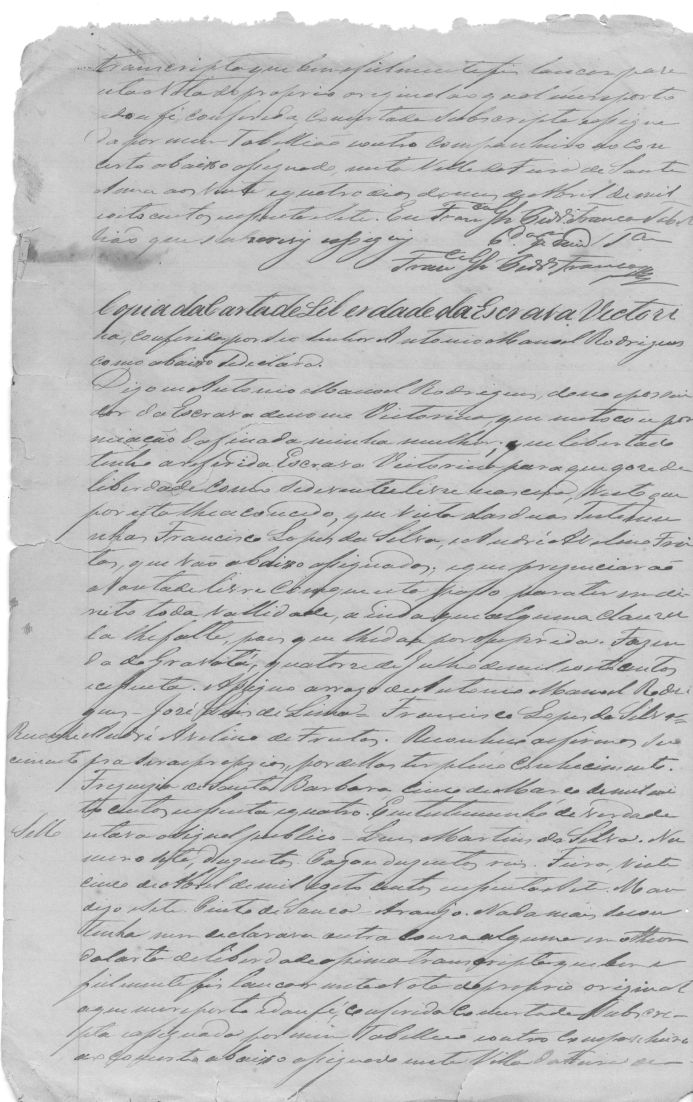 transcripta que bem e fielmente fis lançar para
esta Nota do proprio original ao qual me reporto
e dou fé, conferida, concertada Subscripta e assigna
da por mim Tabellião e outro companheiro ao con
certo abaixo assignado, nesta Villa da Feira de Santa
Anna aos vinte e quatro dias do mes de Abril de mil
oito centos e secenta e sete. Eu Franco Je Franco Tabel
lião que subscrevi e assigney
Franco Je Franco
Copia da Carta de Liberdade da Escrava Victori
na, conferida por seo Senhor Antonio Manoel Rodrigues
como abaixo se declara.
Digo eu Antonio Manoel Rodrigues, dono e possui
dor da Escrava de nome Victorina, que me tocou por
meiação da finada minha mulher, que libertado
tenho a referida Escrava Victorina para que gose de
liberdade como se de ventre livre nascera, visto que
por esta lhe a concedo, em vista das duas Testemu
nhas Francisco Lopes da Silva, e André Avelino Frei
tas, que vão abaixo assignados, e que presenciarão
a vontade livre com que este passo para ter em di
reito toda vallidade, ainda que alguma clausu
la lhe falte, pois que lhe dão por suprida. Fazen
da do Gravatá, quatorze de Julho de mil oito centos
e secenta. Assigno a rogo de Antonio Manoel Rodri
gues - José Luis de Lima - Francisco Lopes da Silva -
Reconhe André Avelino de Freitas. Reconheço as firmas su
cimento pra serem proprios, por dellas ter pleno conhecimento.
Freguezia de Santa Barbara cinco de Março de mil oi
to centos e secenta e quatro. Em testemunho de verdade
Sello estava o signal publico - Luis Martins da Silva. Nu
mero sete, dusentos. Pagou dusentos reis. Feira, vinte
cinco de Abril de mil oito centos e secenta e sete. Mar
digo e Sete. Pinto de Araujo. Nada mais se con
tinha nem declarava outra cousa alguma em a theor
da Carta de liberdade assima transcripta que bem e
fielmente fis lançar nesta Nota do proprio original
a que me reporto e dou fé, conferida concertada Subscri
pta e assignada por mim Tabellião e outro Companheiro
ao concerto abaixo assignado nesta Villa da Feira de